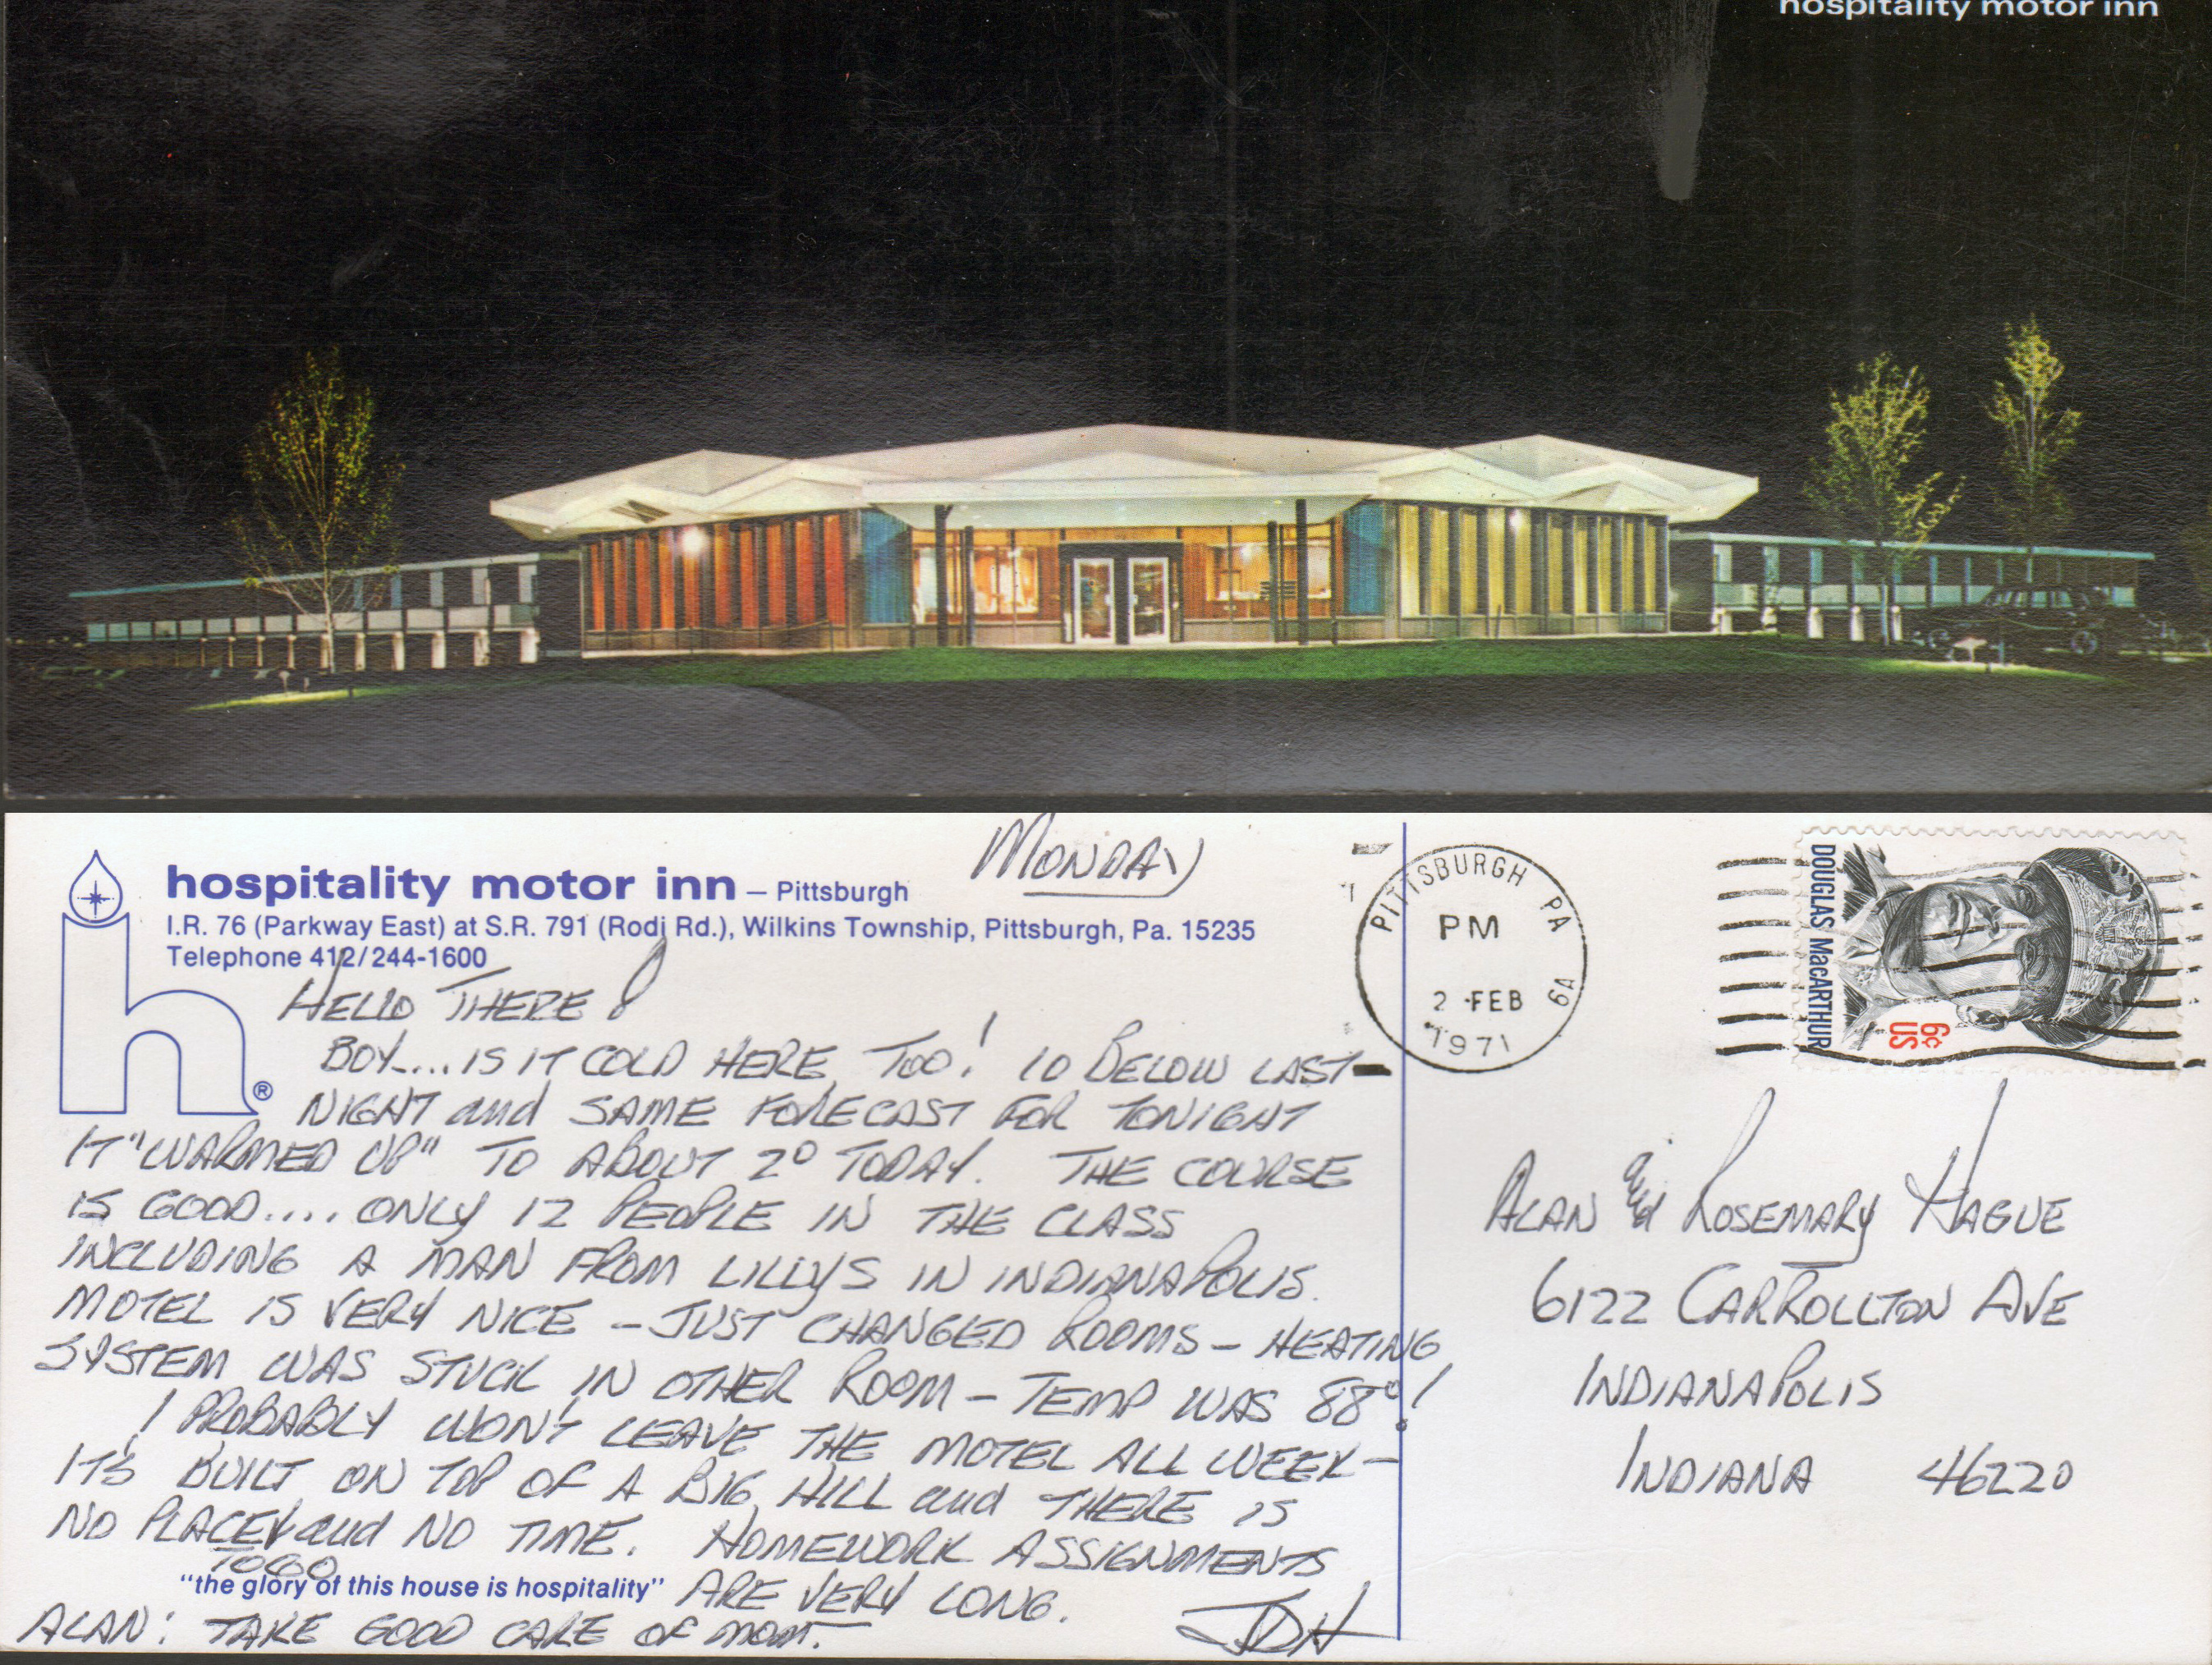 hospitality motor inn
hospitality motor inn – Pittsburgh
I.R. 76 (Parkway East) at S.R. 791 (Rodi Rd.), Wilkins Township, Pittsburgh, Pa. 15235
Telephone 412/244-1600
h®
MONDAY
HELLO THERE!
BOY.... IS IT COLD HERE, TOO! 10 BELOW LAST
NIGHT and SAME FORECAST FOR TONIGHT
IT "WARMED UP" TO ABOUT 2° TODAY. THE COURSE
IS GOOD.... ONLY 12 PEOPLE IN THE CLASS
INCLUDING A MAN FROM LILLYS IN INDIANAPOLIS.
MOTEL IS VERY NICE – JUST CHANGED ROOMS – HEATING
SYSTEM WAS STUCK IN OTHER ROOM – TEMP WAS 88°!
I PROBABLY WON'T LEAVE THE MOTEL ALL WEEK –
IT'S BUILT ON TOP OF A BIG HILL and THERE IS
NO PLACE and NO TIME. HOMEWORK ASSIGNMENTS
TO GO
"the glory of this house is hospitality" ARE VERY LONG.
ALAN: TAKE GOOD CARE OF MOM.
JDH
PITTSBURGH PA
PM
2 FEB
1971
6A
DOUGLAS MacARTHUR
6c
US
ALAN and ROSEMARY HAGUE
6122 CARROLLTON AVE
INDIANAPOLIS
INDIANA 46220